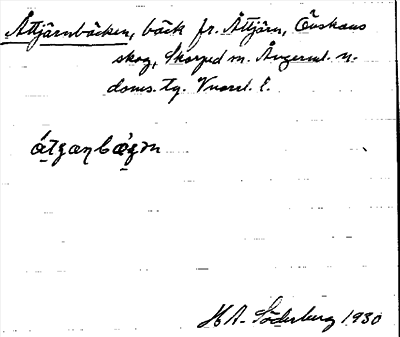 Åttjärnbäcken, bäck fr. Åttjärn, Önskans
skog, Skorped sn. Ångerml. n.
doms. tg.
H A. Söderberg 1930